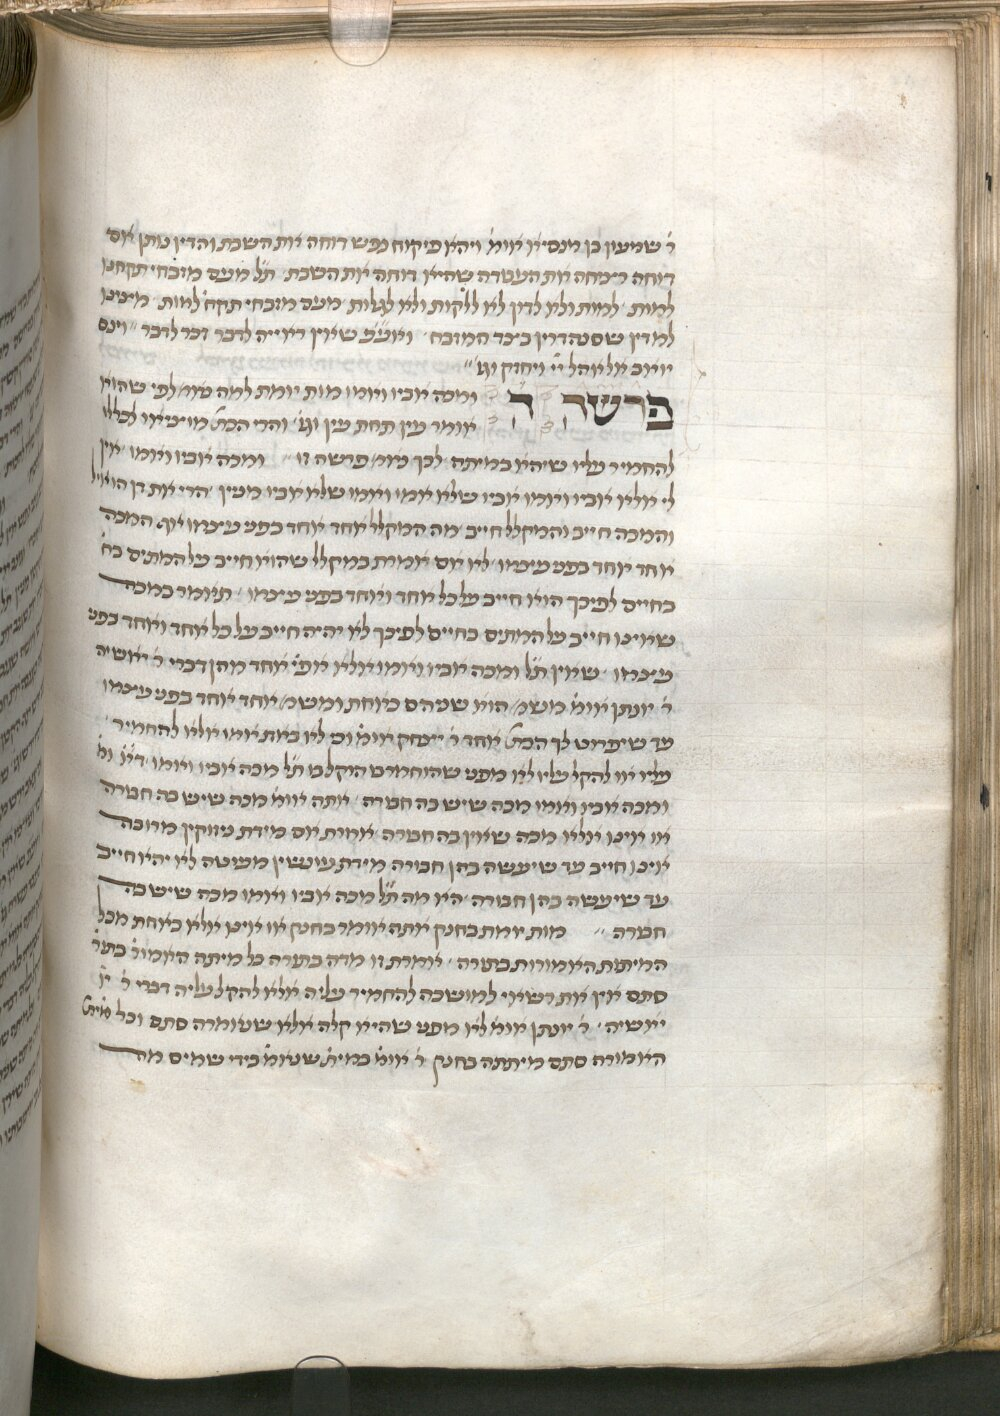 ר׳ שמעון בן מנסיא אומ׳ יהא פיקוח נפש דוחה את השבת והדין נותן אם
דוחה רציחה את העבודה שהיא דוחה את השבת ת״ל מעם מזבחי תקחנו
למות למות ולא לדין לא ללקות ולא לגלות מעם מזבחי תקח׳ למות מיכינו
למדין שסנהדרין בצד המזבח ואע״פ שאין ראייה לדבר זכר לדבר וינס
יואב אל אהל יי׳ ויחזק וגו׳
פרשה ה ומכה אביו ואמו מות יומת למה נאמ׳ לפי שהוא
אומר עין תחת עין וגו׳ והרי הכת׳ מוציאו לכללו
להחמיר עליו שיהא במיתה לכך נאמ׳ פרשה זו ומכה אביו ואמו אין
לי אלא אביו ואמו אביו שלא אמו ואמו שלא אביו מנין הרי את דן הואיל
והמכה חייב והמקלל חייב מה המקלל אחד אחד בפני עצמו אף המכה
אחד אחד בפני עצמו לא אם אמרת במקלל שהוא חייב על המתים כח׳
כחיים לפיכך הוא חייב על כל אחד ואחד בפני עצמו תאמר במכה
שאינו חייב על המתים כחיים לפיכך לא יהיה חייב על כל אחד ואחד בפני
עצמו שאין ת״ל ומכה אביו ואמו אלא אפי׳ אחד מהן דברי ר׳ יאשיה
ר׳ יונתן אומ׳ משמ׳ הוא שניהם כאחת ומשמ׳ אחד אחד בפני עצמו
עד שיפרוט לך הכת׳ אחד ר׳ יצחק אומ׳ וכי לא באת אתו אלא להחמיר
עליו או להקל עליו לא מפני שהוחמרם הוקל בו ת״ל מכה אביו ואמו ד״א ומ׳
ומכה אביו ואמו מכה שיש בה חבורה אתה אומ׳ מכה שיש בה חבורה
או אינו אלא מכה שאין בה חבורה אמרת אם מידת נזיקין מרובה
אינו חייב עד שיעשה בהן חבורה מידת עונשין מעוטה לא יהא חייב
עד שיעשה בהן חבורה הא מה ת״ל מכה אביו ואמו מכה שיש בה
חבורה מות יומת בחנק אתה אומר בחנק או אינו אלא באחת מכל
המיתות האמורות בתורה אמרת זו מדה בתורה כל מיתה האמור׳ בתור׳
סתם אין את רשאי למושכה להחמיר עליה אלא להקל עליה דברי ר׳ יא
יאשיה ר׳ יונתן אומ׳ לא מפני שהיא קלה אלא שנאמרה סתם וכל מית׳
האמורה סתם מיתתה בחנק ר׳ אומ׳ במית׳ שנאמ׳ בידי שמים מה